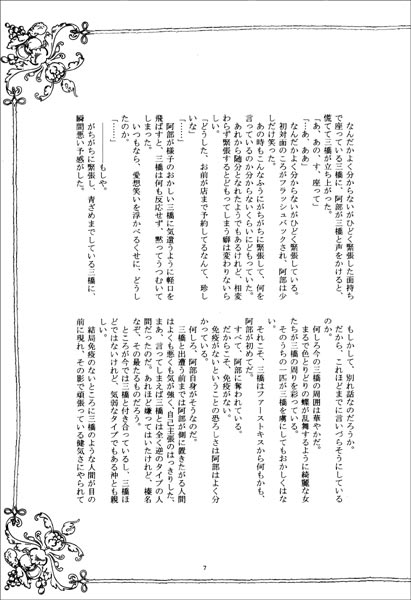 なんだかよく分からないがひどく緊張した面持ち
で座っている三橋に、阿部が三橋と声をかけると、
慌てて三橋が立ち上がった。
「あ、あの、す、座って」
「…あ、ああ」
なんだかよく分からないがひどく緊張している。
初対面のころがフラッシュバックされ、阿部は少
しだけ笑った。
あの時もこんなふうにがちがちに緊張して、何を
言っているのか分からないくらいにどもっていた。
あれから随分となれたようでもあるけれど、相変
わらず緊張するとどもってしまう癖は変わりないら
しい。
「どうした、お前が店まで予約してるなんて、珍し
いな」
「……」
阿部が様子のおかしい三橋に気遣うように軽口を
飛ばすと、三橋は何も反応せず、黙ってうつむいて
しまった。
いつもなら、愛想笑いを浮かべるくせに、どうし
たのか。
「……」
――――もしや。
がちがちに緊張し、青ざめまでしている三橋に、
瞬間悪い予感がした。
もしかして、別れ話なのだろうか。
だから、これほどまでに言いづらそうにしている
のか。
何しろ今の三橋の周囲は華やかだ。
まるで色とりどりの蝶が乱舞するように綺麗な女
たちが三橋の周りを彩っている。
そのうちの一匹が三橋を虜にしてもおかしくはな
い。
それこそ、三橋はファーストキスから何もかも、
阿部が初めてだ。
すべて、阿部に奪われている。
だからこそ、免疫がない。
免疫がないということの恐ろしさは阿部はよく分
かっている。
何しろ、阿部自身がそうなのだ。
三橋と出遭う前までは阿部が側に置きたがる人間
はよくも悪くも気が強く、自己主張のはっきりした、
まあ、言ってしまえば三橋とは全く逆のタイプの人
間だったのだ。あれほど嫌ってはいたけれど、榛名
なぞ、その最たるものだろう。
ところが今では三橋と付き合っているし、三橋ほ
どではないけれど、気弱なタイプでもある沖とも親
しい。
結局免疫のないところに三橋のような人間が目の
前に現れ、その影で頑張っている健気さにやられて
7